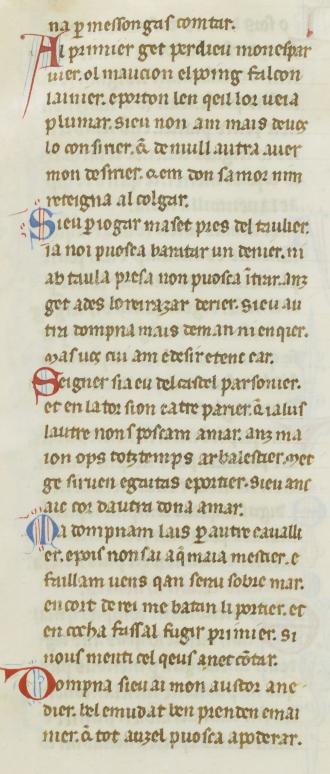 na ꝑ messongas comtar.
Al primier get perdieu mon espar
uier. ol maucion el poing falcon
lainier. e porton len qeil lor ueia
plumar. sieu non am mais deuos
lo consirier. q̃ de nuill autra auer
mon desirier. ni em don samor nim
reteigna al colgar.
Sieu ꝑ iogar maset pres del taulier.
ia noi puosca baratar un denier. ni
ab taula presa non puosca ĩtrar. anz
get ades lo reirazar derier. sieu au
tra dompna mais deman ni enqier.
mas uos cui am e desir e tenc car.
Seigner sia eu de castel parsonier.
et en la tor sion catre parier. q̃ ia lus
lautre non s poscam amar. anz ma
ion ops totz temps arbalestier. met
ge siruen e gaitas e portier. sieu anc
aic cor dautra dona amar.
Ma dompnam lais ꝑ autre caualli
er. e pois non sai aq̃ maia mestier. e
faillam uens qan serai sobre mar.
en cort de rei me batan li portier. et
en cocha fassal fugir primier. si
nous menti cel qeus anet cõtar.
Dompna sieu ai mon austor ane
dier. bel e mudat ben prenden e mai
nier. q̃ tot auzel puosca apoderar.